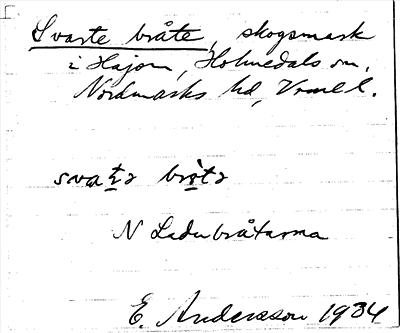 Svarte bråte, skogsmark
i Hajom, Holmedals sn,
Nordmarks hd, Vrml.
svatə brotə
N Ladubråtarna
E. Andersson 1934